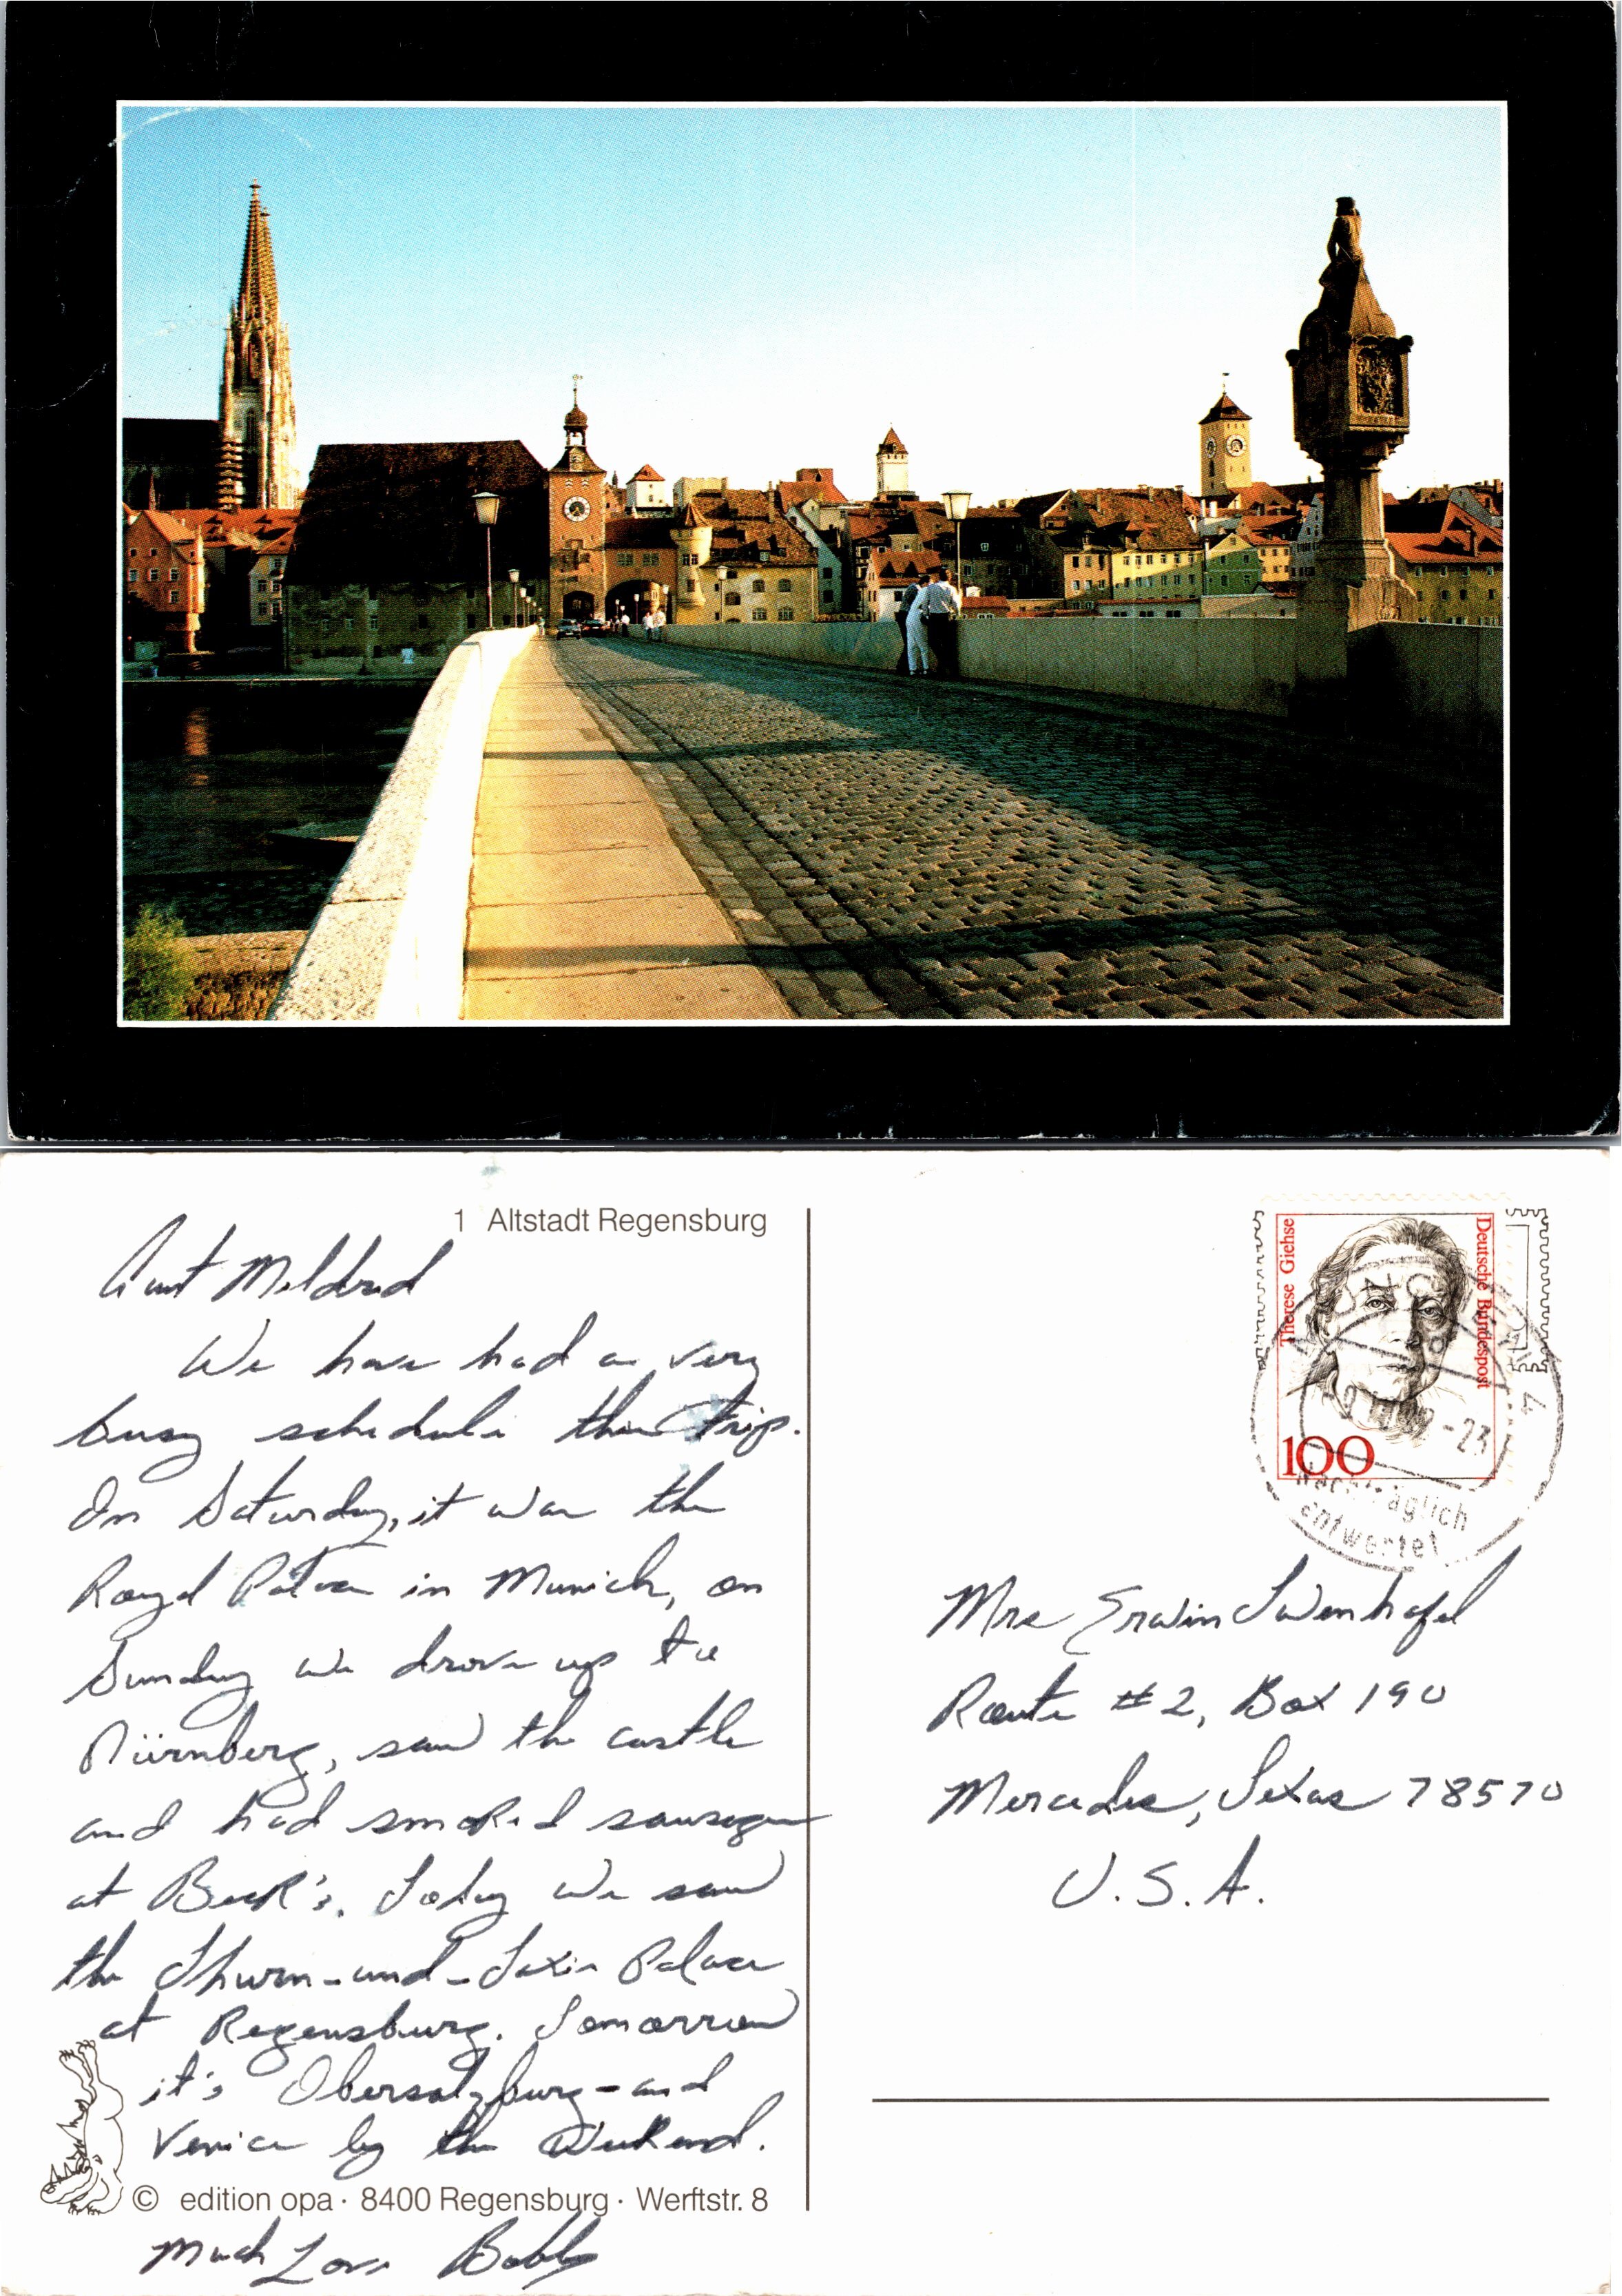 1 Altstadt Regensburg
Aunt Mildred
We have had a very
busy schedule this trip.
On Saturday, it was the
Royal Palace in Munich, on
Sunday we drove up to
Nürnberg, saw the castle
and had smoked sausages
at Beck's. Today we saw
the Thurn-und-Taxis Palace
at Regensburg. Tomorrow
it's Obersalzburg-and
Venice by the Weekend.
© edition opa · 8400 Regensburg · Werftstr. 8
Much Love Bobby
Therese Giehse
Deutsche Bundespost
100
-23
Nachträglich
entwertet
Mrs Erwin
Route #2, Box 190
Mercedes, Texas 78570
U.S.A.